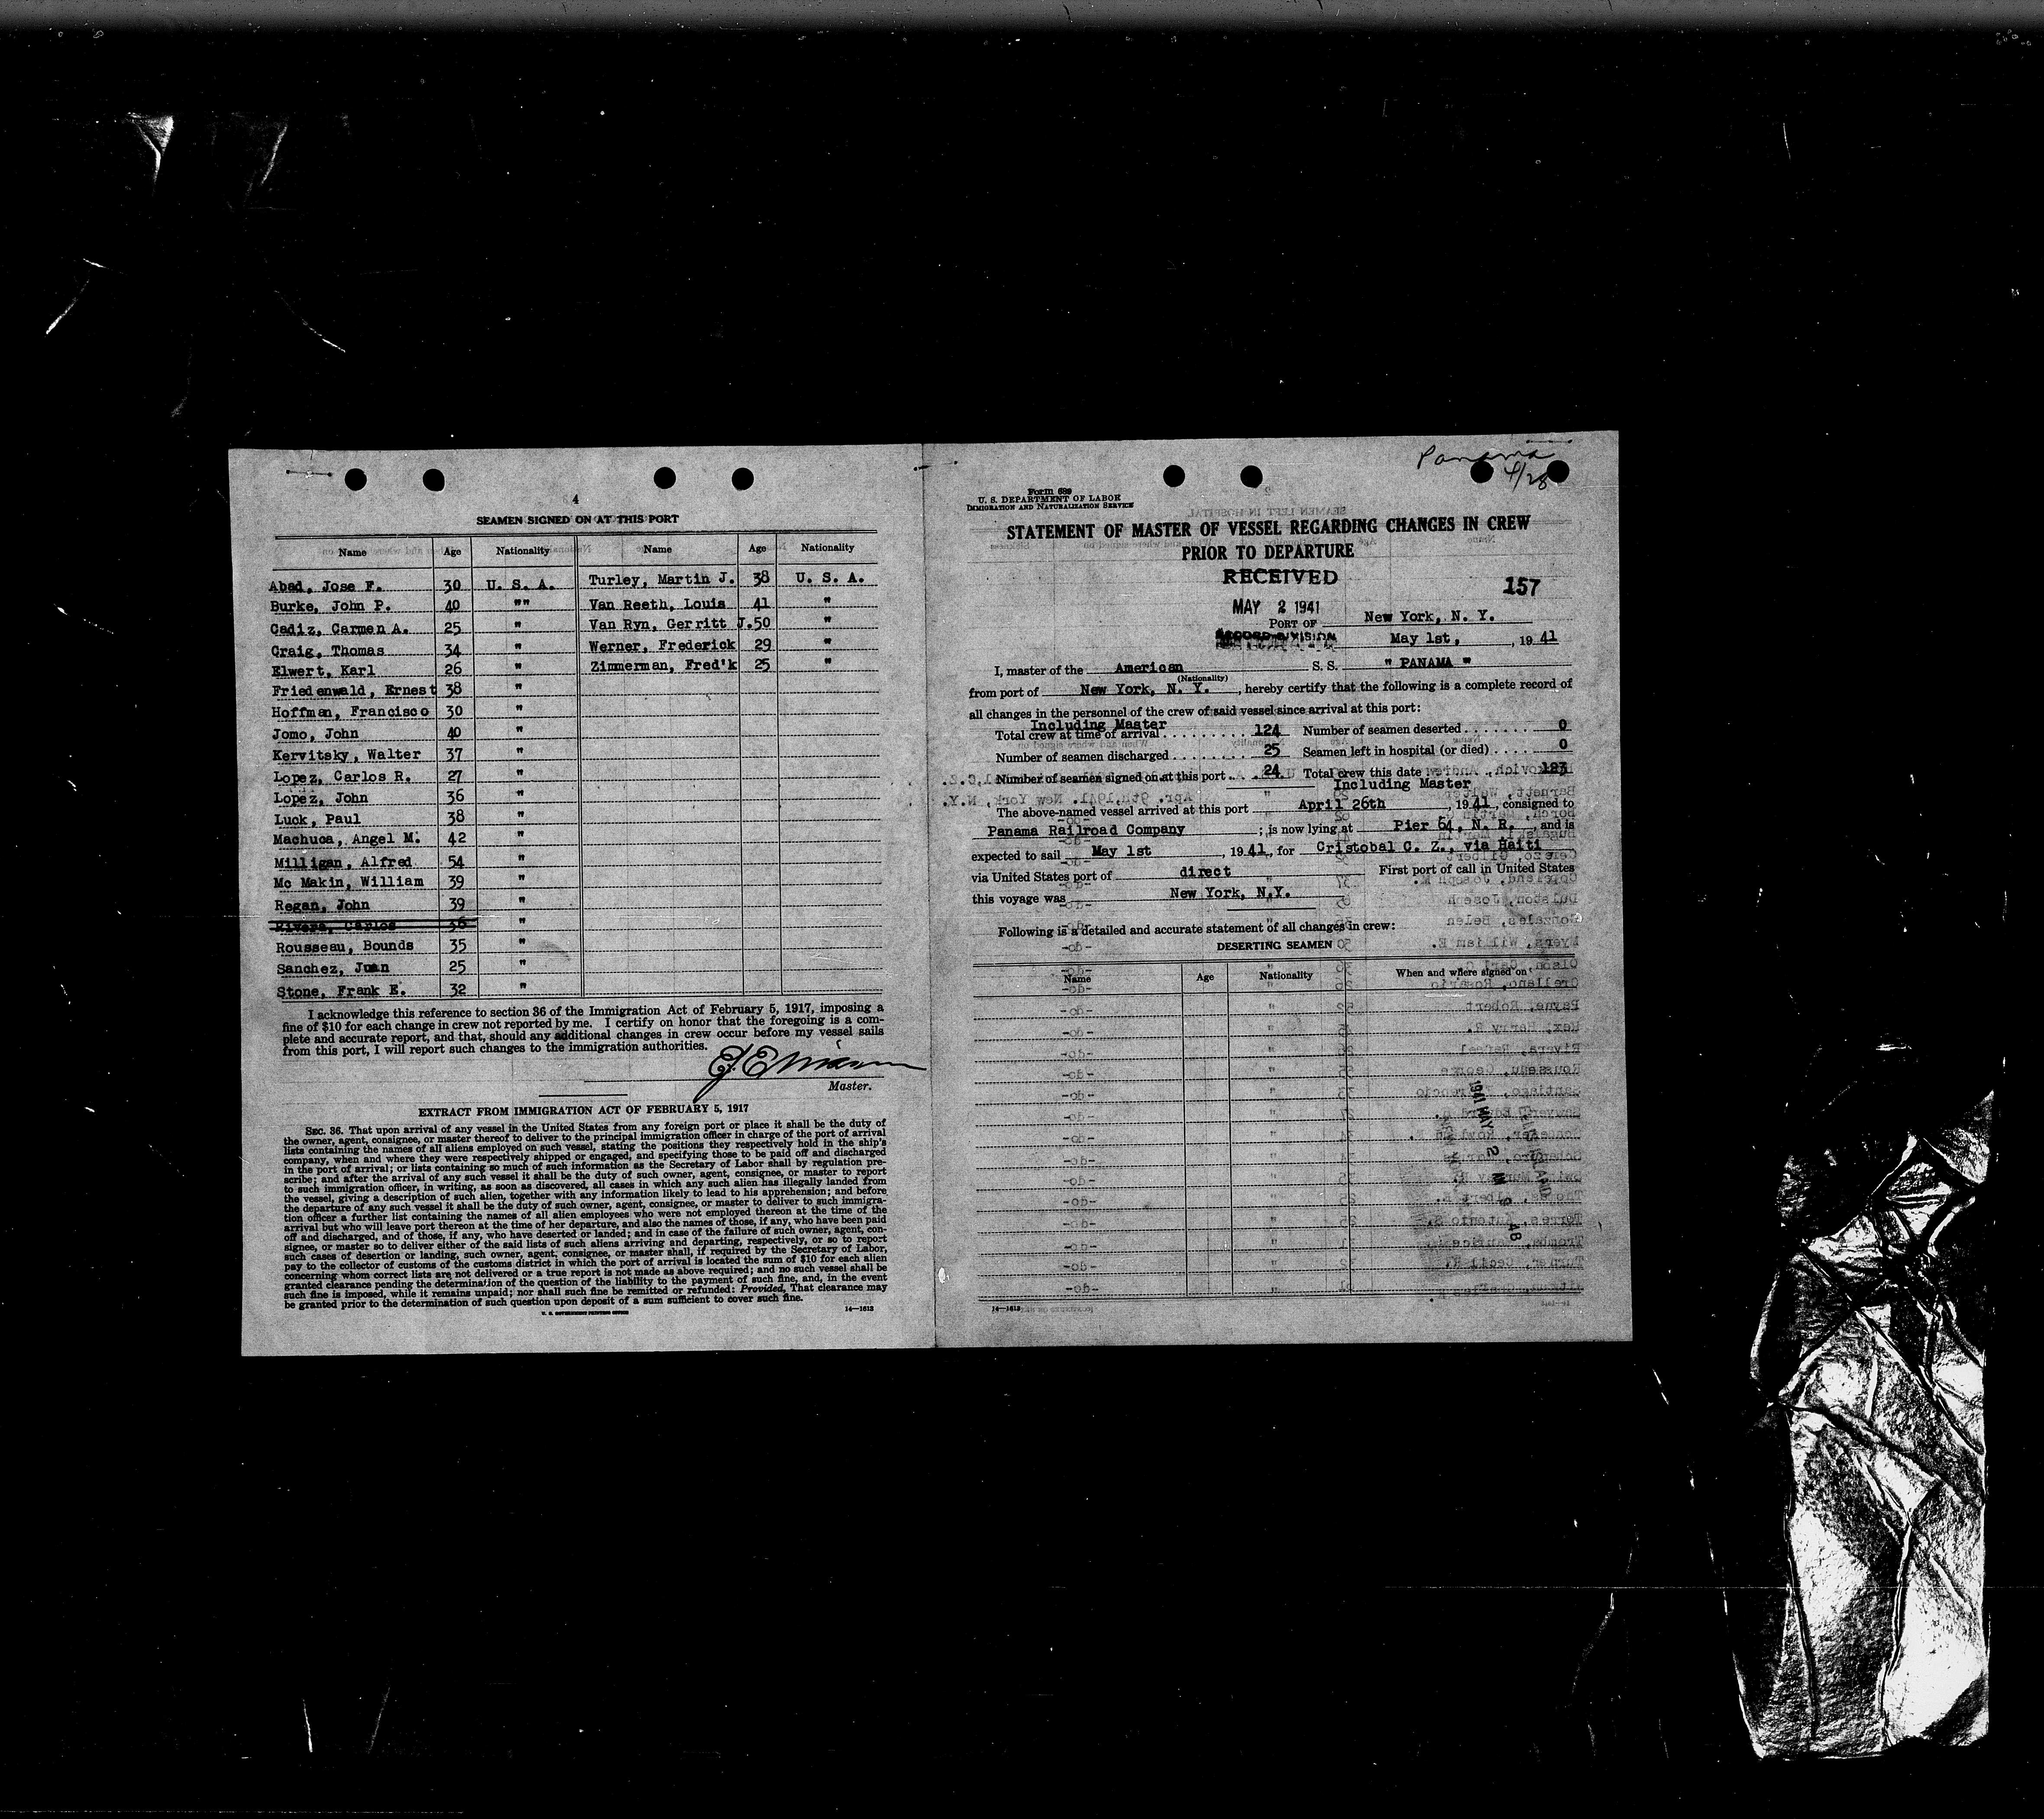 4
SEAMEN SIGNED ON AT THIS PORT
Name Age Nationality Name Age Nationality
Abad, Jose F. 30 U. S. A. Turley, Martin J. 38 U. S. A.
Burke, John P. 40 "" Van Reeth, Louis 41 "
Cadiz, Carmen A. 25 " Van Ryn, Gerritt J. 50 "
Craig, Thomas 34 " Werner, Frederick 29 "
Elwert, Karl 26 " Zimmerman, Fred'k 25 "
Friedenwald, Ernest 38 "
Hoffman, Francisco 30 "
Jomo, John 40 "
Kervitsky, Walter 37 "
Lopez, Carlos R. 27 "
Lopez, John 36 "
Luck, Paul 38 "
Machuca, Angel M. 42 "
Milligan, Alfred 54 "
Mc Makin, William 39 "
Regan, John 39 "
Rivera, Carlos 36 "
Rousseau, Bounds 35 "
Sanchez, Juan 25 "
Stone, Frank E. 32 "
I acknowledge this reference to section 36 of the Immigration Act of February 5, 1917, imposing a
fine of $10 for each change in crew not reported by me. I certify on honor that the foregoing is a com-
plete and accurate report, and that, should any additional changes in crew occur before my vessel sails
from this port, I will report such changes to the immigration authorities.
Master.
EXTRACT FROM IMMIGRATION ACT OF FEBRUARY 5, 1917
SEC. 36. That upon arrival of any vessel in the United States from any foreign port or place it shall be the duty of
the owner, agent, consignee, or master thereof to deliver to the principal immigration officer in charge of the port of arrival
lists containing the names of all aliens employed on such vessel, stating the positions they respectively hold in the ship's
company, when and where they were respectively shipped or engaged, and specifying those to be paid off and discharged
in the port of arrival; or lists containing so much of such information as the Secretary of Labor shall by regulation pre-
scribe; and after the arrival of any such vessel it shall be the duty of such owner, agent, consignee, or master to report
to such immigration officer, in writing, as soon as discovered, all cases in which any such alien has illegally landed from
the vessel, giving a description of such alien, together with any information likely to lead to his apprehension; and before
the departure of any such vessel it shall be the duty of such owner, agent, consignee, or master to deliver to such immigra-
tion officer a further list containing the names of all alien employees who were not employed thereon at the time of the
arrival but who will leave port thereon at the time of her departure, and also the names of those, if any, who have been paid
off and discharged, and of those, if any, who have deserted or landed; and in case of the failure of such owner, agent, con-
signee, or master so to deliver either of the said lists of such aliens arriving and departing, respectively, or so to report
such cases of desertion or landing, such owner, agent, consignee, or master shall, if required by the Secretary of Labor,
pay to the collector of customs of the customs district in which the port of arrival is located the sum of $10 for each alien
concerning whom correct lists are not delivered or a true report is not made as above required; and no such vessel shall be
granted clearance pending the determination of the question of the liability to the payment of such fine, and, in the event
such fine is imposed, while it remains unpaid; nor shall such fine be remitted or refunded: Provided, That clearance may
be granted prior to the determination of such question upon deposit of a sum sufficient to cover such fine.
U. S. GOVERNMENT PRINTING OFFICE 14—1613
Panama
4/28
Form 689
U. S. DEPARTMENT OF LABOR
IMMIGRATION AND NATURALIZATION SERVICE
STATEMENT OF MASTER OF VESSEL REGARDING CHANGES IN CREW
PRIOR TO DEPARTURE
RECEIVED
157
MAY 2 1941
PORT OF New York, N. Y.
RECORD DIVISION
May 1st, , 19 41
I, master of the American S. S. " PANAMA "
(Nationality)
from port of New York, N. Y. , hereby certify that the following is a complete record of
all changes in the personnel of the crew of said vessel since arrival at this port:
Including Master
Total crew at time of arrival 124 Number of seamen deserted 0
Number of seamen discharged 25 Seamen left in hospital (or died) 0
Number of seamen signed on at this port 24 Total crew this date 123
Including Master
The above-named vessel arrived at this port April 26th , 19 41, consigned to
Panama Railroad Company ; is now lying at Pier 64, N. R. and is
expected to sail May 1st , 19 41, for Cristobal C. Z., via Haiti
via United States port of direct First port of call in United States
this voyage was New York, N.Y.
Following is a detailed and accurate statement of all changes in crew:
DESERTING SEAMEN
Name Age Nationality When and where signed on
1941 MAY 2 AM 9 48
14—1613